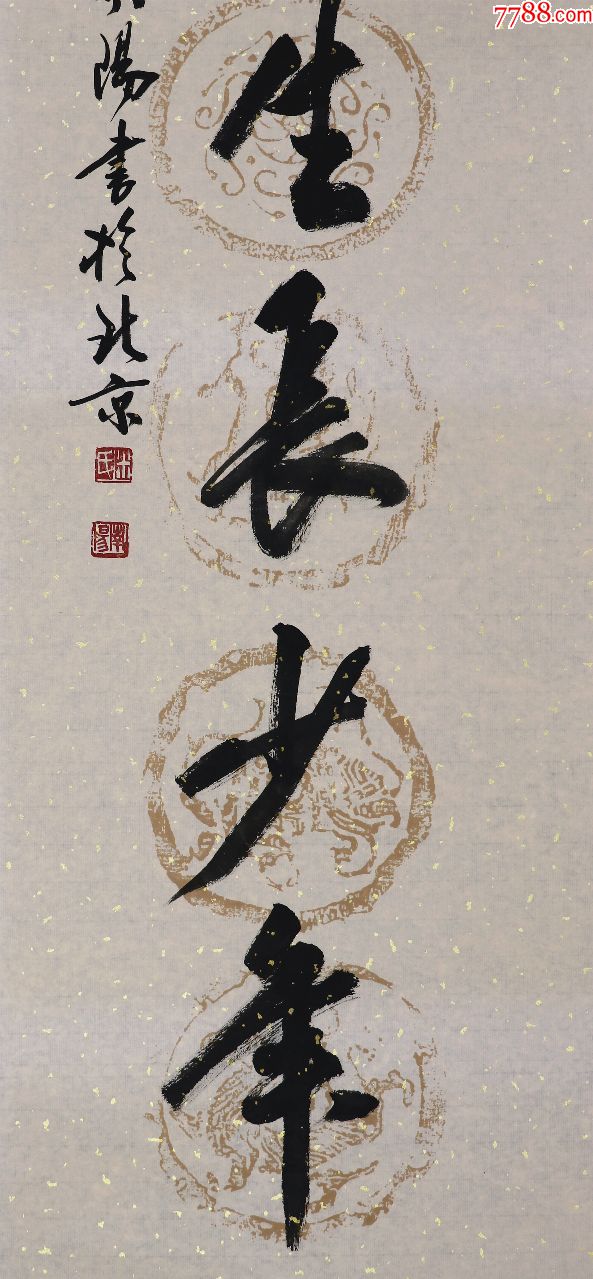 7788.com
生長少年
陽書於北京